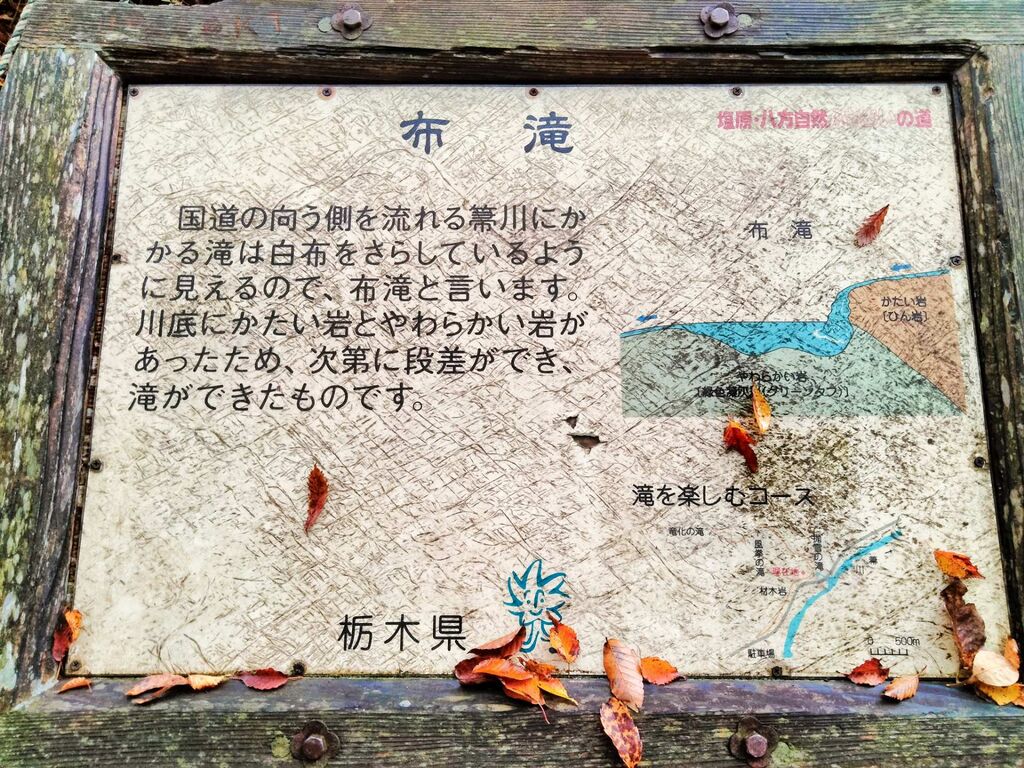 塩原・八方自然 の道
布 滝
国道の向う側を流れる箒川にか
かる滝は白布をさらしているよう
に見えるので、布滝と言います。
川底にかたい岩とやわらかい岩が
あったため、次第に段差ができ、
滝ができたものです。
布 滝
かたい岩
〔ひん岩〕
やわらかい岩
(グリーンタフ)〕
滝を楽しむコース
竜化の滝
風挙の滝
の滝
現在地
材木岩
箒
川
駐車場
0 500m
栃木県